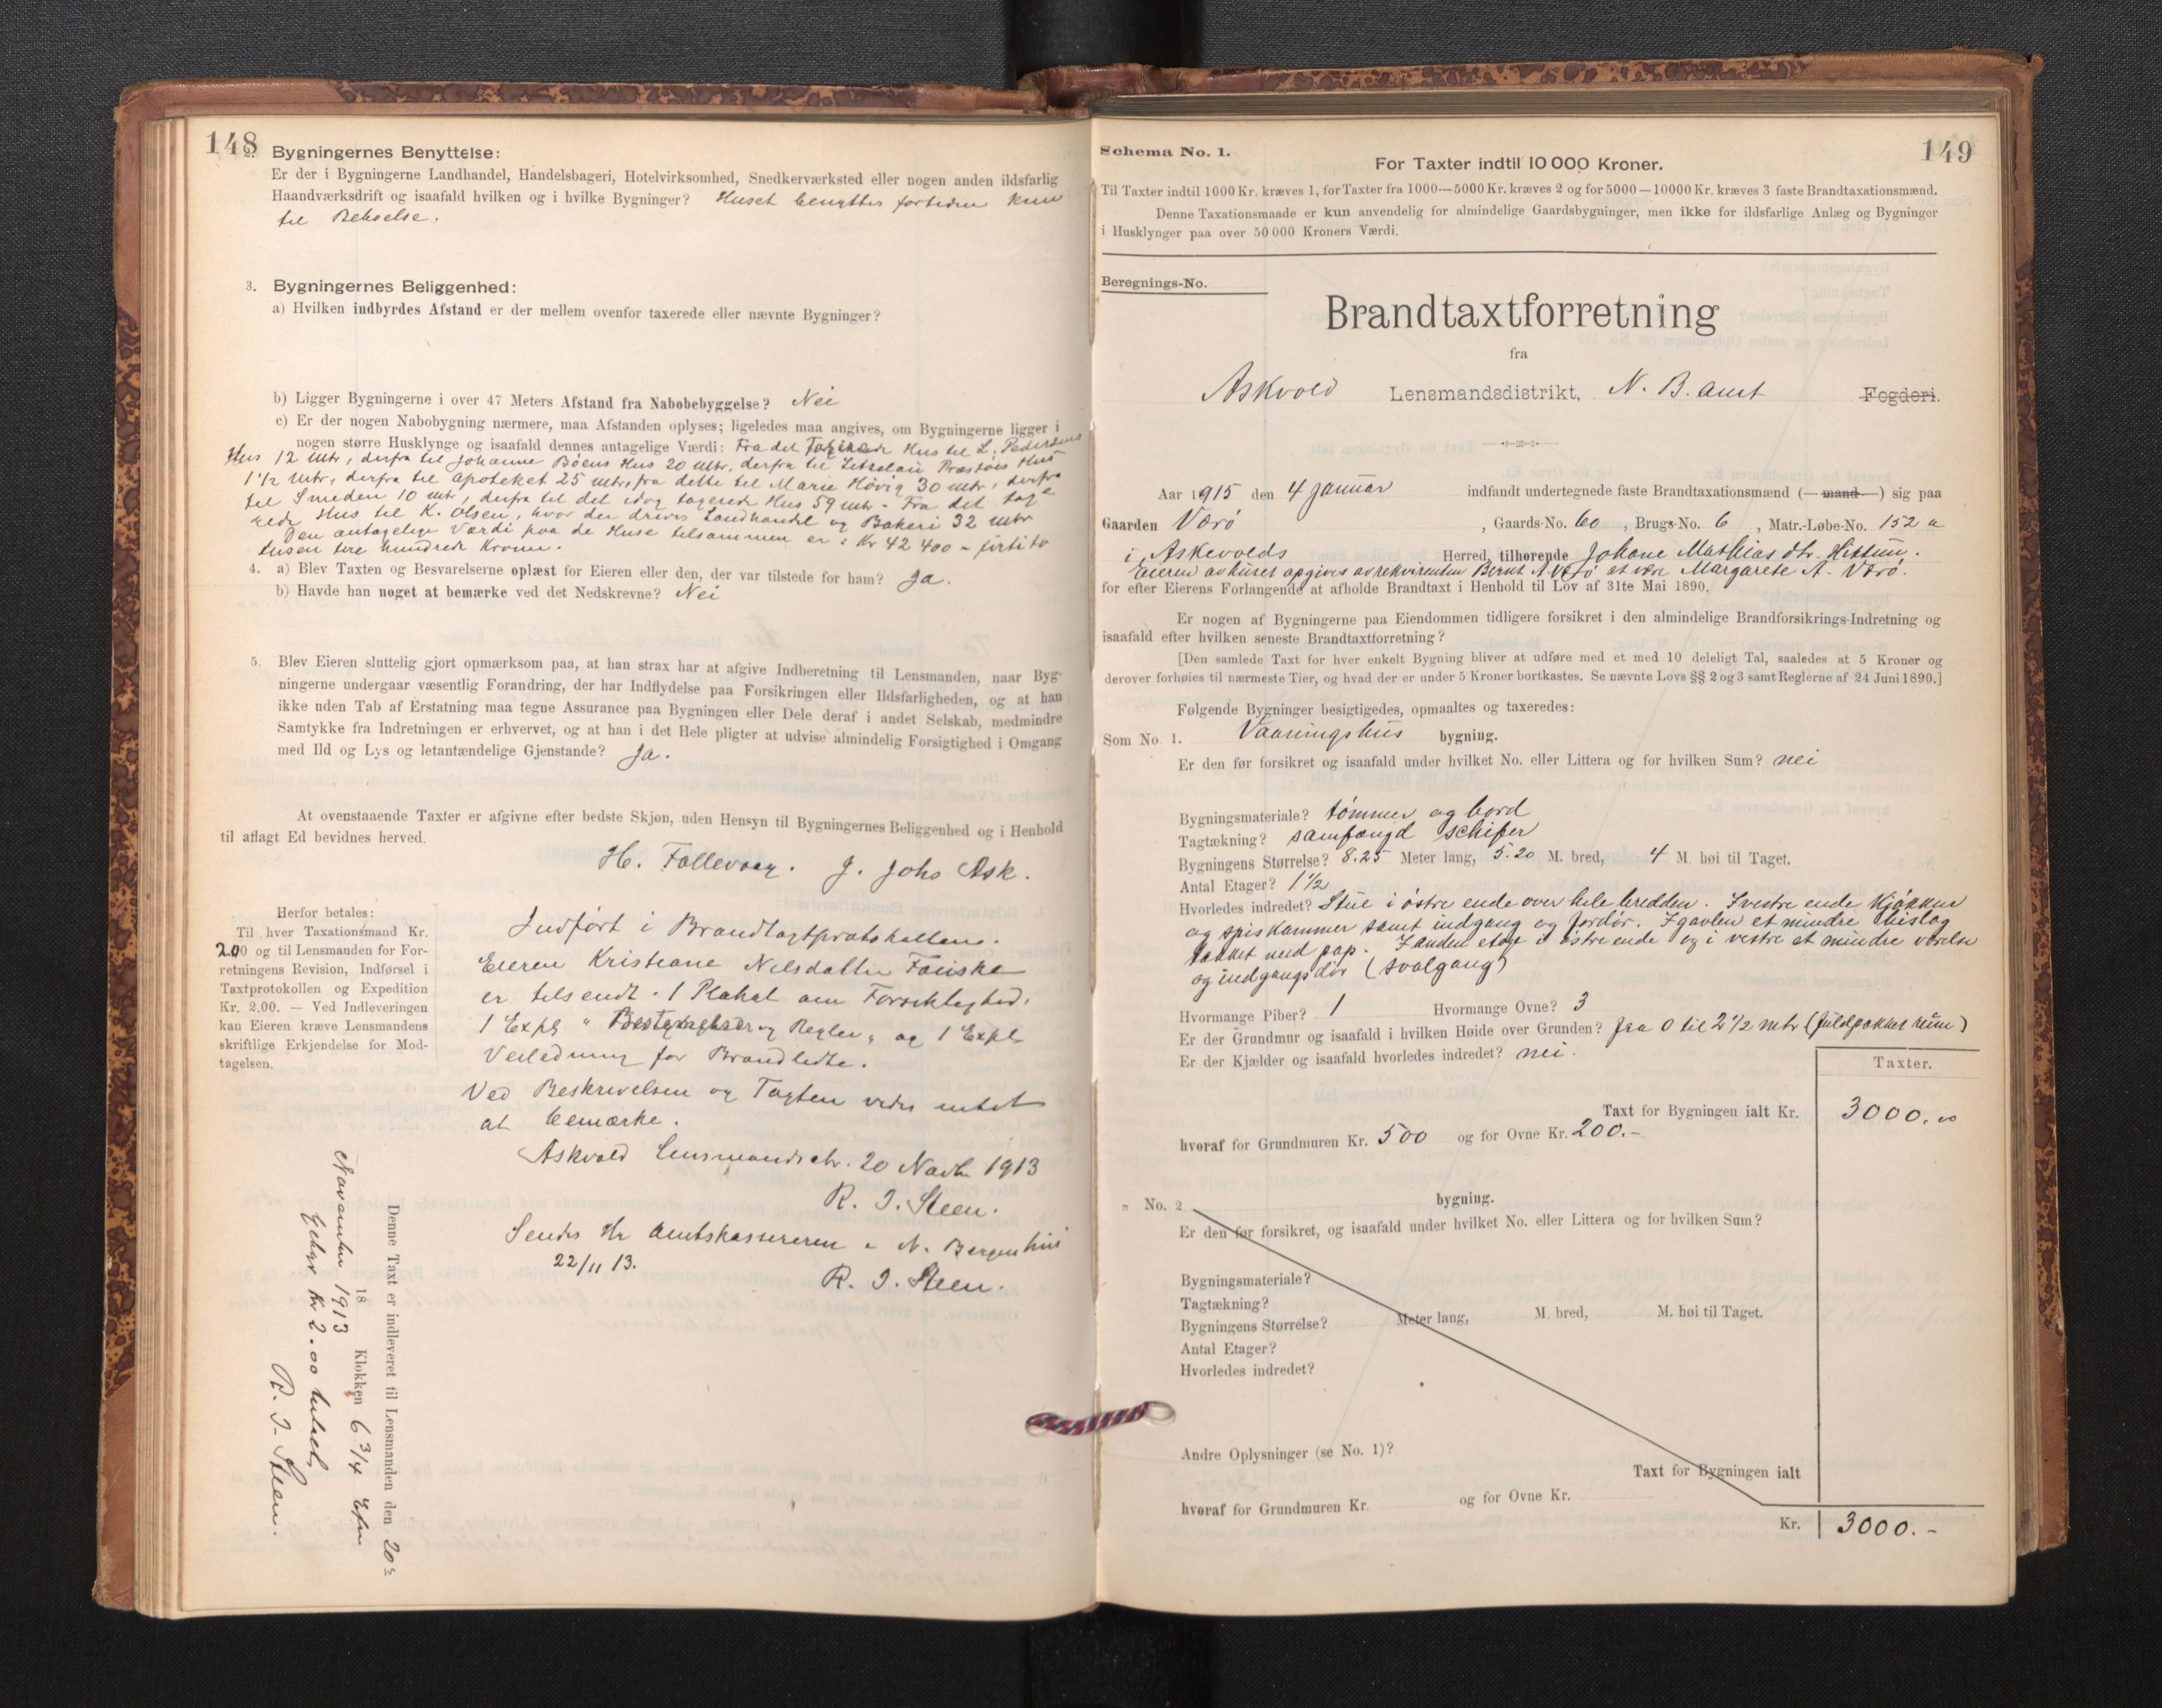 148
2. Bygningernes Benyttelse:
Er der i Bygningerne Landhandel, Handelsbageri, Hotelvirksomhed, Snedkerværksted eller nogen anden ildsfarlig
Haandværksdrift og isaafald hvilken og i hvilke Bygninger? Huset benyttes fortiden kun
til Beboelse.
3. Bygningernes Beliggenhed:
a) Hvilken indbyrdes Afstand er der mellem ovenfor taxerede eller nævnte Bygninger?
b) Ligger Bygningerne i over 47 Meters Afstand fra Nabobebyggelse? Nei
c) Er der nogen Nabobygning nærmere, maa Afstanden oplyses; ligeledes maa angives, om Bygningerne ligger i
nogen større Husklynge og isaafald dennes antagelige Værdi: Fra det Taxerede Hus til L. Pedersens
Hus 12 mtr, derfra til Johanne Böens Hus 20 mtr. derfra til Præstöis Hus
1 1/2 mtr, derfra til Apoteket 25 mtr, fra dette til Marie Hövig 30 mtr, derfra
til Smeden 10 mtr, derfra til det idag taxerede Hus 59 mtr. Fra det taxe
rede Hus til K. Olsen, hvor der drives Landhandel og Bakeri 32 mtr
Den antagelige Værdi paa de Huse tilsammen er: Kr 42 400 - förti to
tusen fire hundrede Kroner.
4. a) Blev Taxten og Besvarelserne oplæst for Eieren eller den, der var tilstede for ham? Ja.
b) Havde han noget at bemærke ved det Nedskrevne? Nei
5. Blev Eieren sluttelig gjort opmærksom paa, at han strax har at afgive Indberetning til Lensmanden, naar Byg-
ningerne undergaar væsentlig Forandring, der har Indflydelse paa Forsikringen eller Ildsfarligheden, og at han
ikke uden Tab af Erstatning maa tegne Assurance paa Bygningen eller Dele deraf i andet Selskab, medmindre
Samtykke fra Indretningen er erhvervet, og at han i det Hele pligter at udvise almindelig Forsigtighed i Omgang
med Ild og Lys og letantændelige Gjenstande? Ja.
At ovenstaaende Taxter er afgivne efter bedste Skjøn, uden Hensyn til Bygningernes Beliggenhed og i Henhold
til aflagt Ed bevidnes herved.
H. Follevaag. J. Johs Ask.
Herfor betales:
Til hver Taxationsmand Kr.
2.00 og til Lensmanden for For-
retningens Revision, Indførsel i
Taxtprotokollen og Expedition
Kr. 2.00. — Ved Indleveringen
kan Eieren kræve Lensmandens
skriftlige Erkjendelse for Mod-
tagelsen.
Indfört i Brandtaxtprotokollen.
Eieren Kristiane Nilsdatter Fauske
er tilsendt 1 Plakat om Forsiktighed,
1 Expl " Bestemmelser og Regler " og 1 Expl
Veiledning for Brandledte.
Ved Beskrivelsen og Taxten vides intet
at bemærke.
Askvold Lensmandsktr. 20 Novbr 1913
R. J. Steen.
Sendes Hr Amtskassereren i N. Bergenhus
22/11 13.
R. J. Steen.
Denne Taxt er indleveret til Lensmanden den 20de
November 1913 18 Klokken 6 3/4 Efm
Gebyr Kr 2.00 betalt
R. J. Steen.
149
Schema No. 1.
For Taxter indtil 10 000 Kroner.
Til Taxter indtil 1000 Kr. kræves 1, for Taxter fra 1000—5000 Kr. kræves 2 og for 5000—10000 Kr. kræves 3 faste Brandtaxationsmænd.
Denne Taxationsmaade er kun anvendelig for almindelige Gaardsbygninger, men ikke for ildsfarlige Anlæg og Bygninger
i Husklynger paa over 50 000 Kroners Værdi.
Beregnings-No.
Brandtaxtforretning
fra
Askvold Lensmandsdistrikt, N. B. amt Fogderi.
Aar 1915 den 4 januar indfandt undertegnede faste Brandtaxationsmænd (—mand—) sig paa
Gaarden Værö, Gaards-No. 60, Brugs-No. 6, Matr.-Løbe-No. 152 a
i Askevolds Herred, tilhørende Johane Mathias dtr. Hittun.
Eieren av huset opgives av rekvirenten Bernt A. Værö at være Margarete A. Værö.
for efter Eierens Forlangende at afholde Brandtaxt i Henhold til Lov af 31te Mai 1890.
Er nogen af Bygningerne paa Eiendommen tidligere forsikret i den almindelige Brandforsikrings-Indretning og
isaafald efter hvilken seneste Brandtaxtforretning?
[Den samlede Taxt for hver enkelt Bygning bliver at udføre med et med 10 deleligt Tal, saaledes at 5 Kroner og
derover forhøies til nærmeste Tier, og hvad der er under 5 Kroner bortkastes. Se nævnte Lovs §§ 2 og 3 samt Reglerne af 24 Juni 1890.]
Følgende Bygninger besigtigedes, opmaaltes og taxeredes:
Som No. 1. Vaaningshus bygning.
Er den før forsikret og isaafald under hvilket No. eller Littera og for hvilken Sum? nei
Bygningsmateriale? tömmer og bord
Tagtækning? samfængd schifer
Bygningens Størrelse? 8.25 Meter lang, 5.20 M. bred, 4 M. høi til Taget.
Antal Etager? 1 1/2
Hvorledes indredet? Stue i östre ende over hele bredden. I vestre ende Kjökken
og spiskammer samt indgang og fordör. I gavlen et mindre bislag
tækket med pap. I anden etage i östre ende og i vestre et mindre værelse
og indgangsdör (svalgang)
Hvormange Piber? 1 Hvormange Ovne? 3
Er der Grundmur og isaafald i hvilken Høide over Grunden? fra 0 til 2 1/2 mtr (fuldpakket rum)
Er der Kjælder og isaafald hvorledes indredet? nei.
Taxter.
Taxt for Bygningen ialt Kr. 3000.00
hvoraf for Grundmuren Kr. 500 og for Ovne Kr. 200.-
" No. 2 bygning.
Er den før forsikret, og isaafald under hvilket No. eller Littera og for hvilken Sum?
Bygningsmateriale?
Tagtækning?
Bygningens Størrelse? Meter lang, M. bred, M. høi til Taget.
Antal Etager?
Hvorledes indredet?
Andre Oplysninger (se No. 1)?
Taxt for Bygningen ialt
hvoraf for Grundmuren Kr. og for Ovne Kr.
Kr. 3000.-